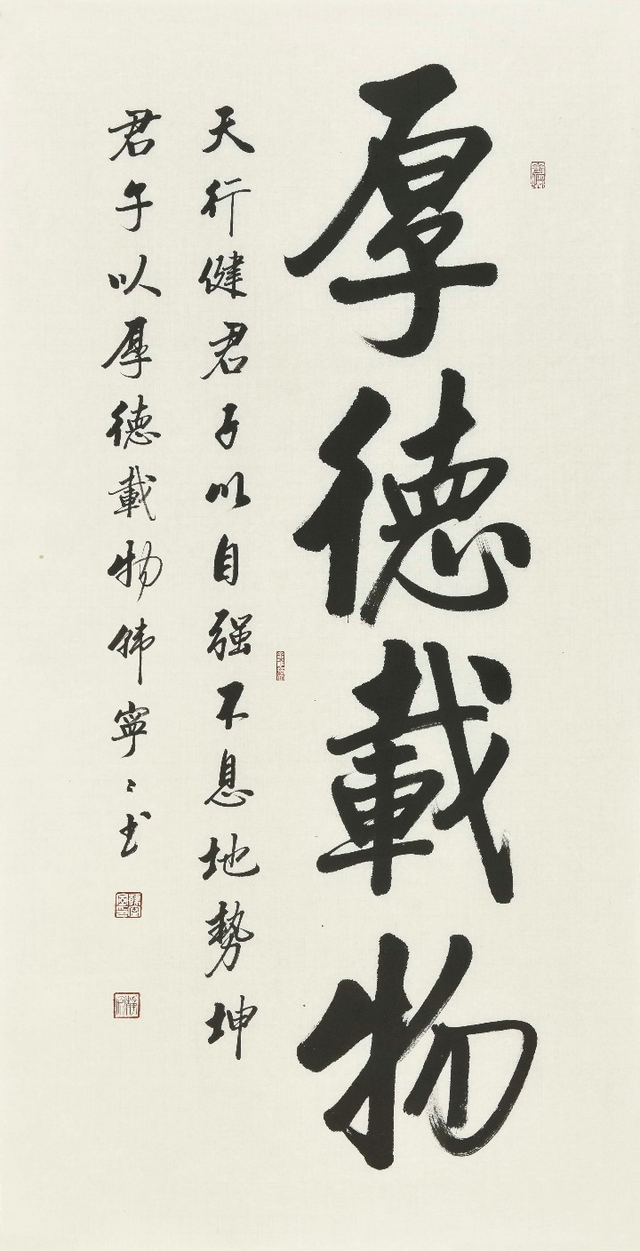 厚德載物
天行健君子以自强不息地勢坤
君子以厚德載物韩寧寧书